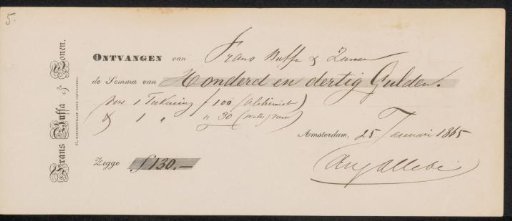 5.
Frans Buffa & Zonen.
ONTVANGEN van Frans Buffa & Zonen
de Somma van Honderd en dertig Gulden.
voor 1 Teekening f 100 (alchimist)
& 1 " " 30
Amsterdam, 25 Januari 1865
Zegge f 130.—
Aug Allebé